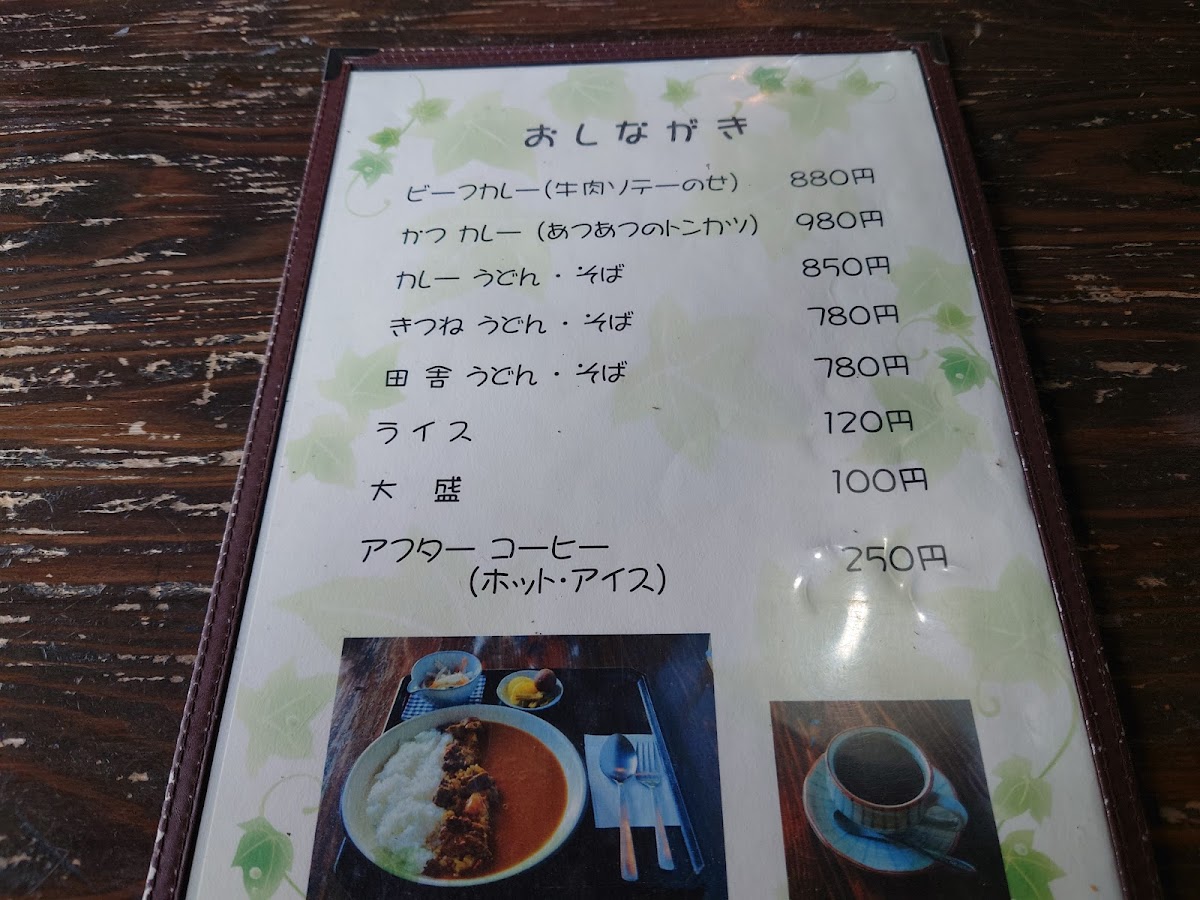 おしながき
ビーフカレー(牛肉ソテーのせ) 880円
かつ カレー (あつあつのトンカツ) 980円
カレー うどん・そば 850円
きつね うどん・そば 780円
田舎 うどん・そば 780円
ライス 120円
大 盛 100円
アフター コーヒー 250円
(ホット・アイス)